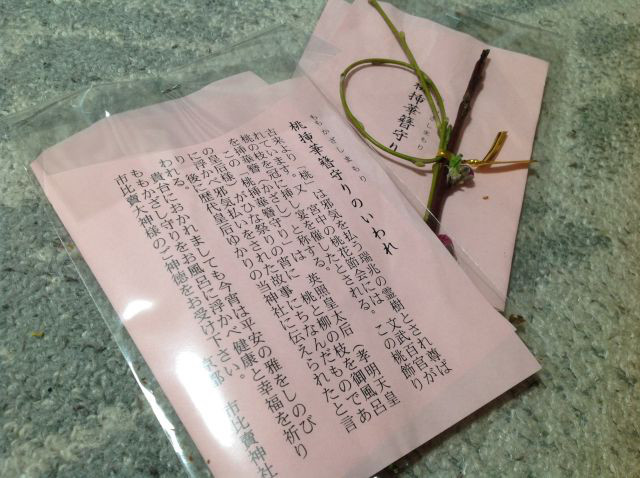 ももかざしまもり
桃挿華簪守りのいわれ
古来より「桃」は邪気を払う瑞兆の霊樹とされ尊ば
又、宮中催しの桃花節会には、文武百官が
桃の枝を冠に挿し宴を この桃飾り
「桃挿華簪守り」は、英照皇太后（孝明天皇
の皇后様）が 桃と柳の枝を御風呂
に浮かべ邪気払いをされた故事にちなんだものであ
り、後に歴代皇后ゆかりの当神社に伝えられたと言
われる。
貴台におかれましても今宵は平安の雅をしのび
ももかざし守りをお風呂に浮かべ健康と幸福を祈り
市比賣大神様のご神徳をお受け下さい。
京都 市比賣神社
桃挿華簪守り